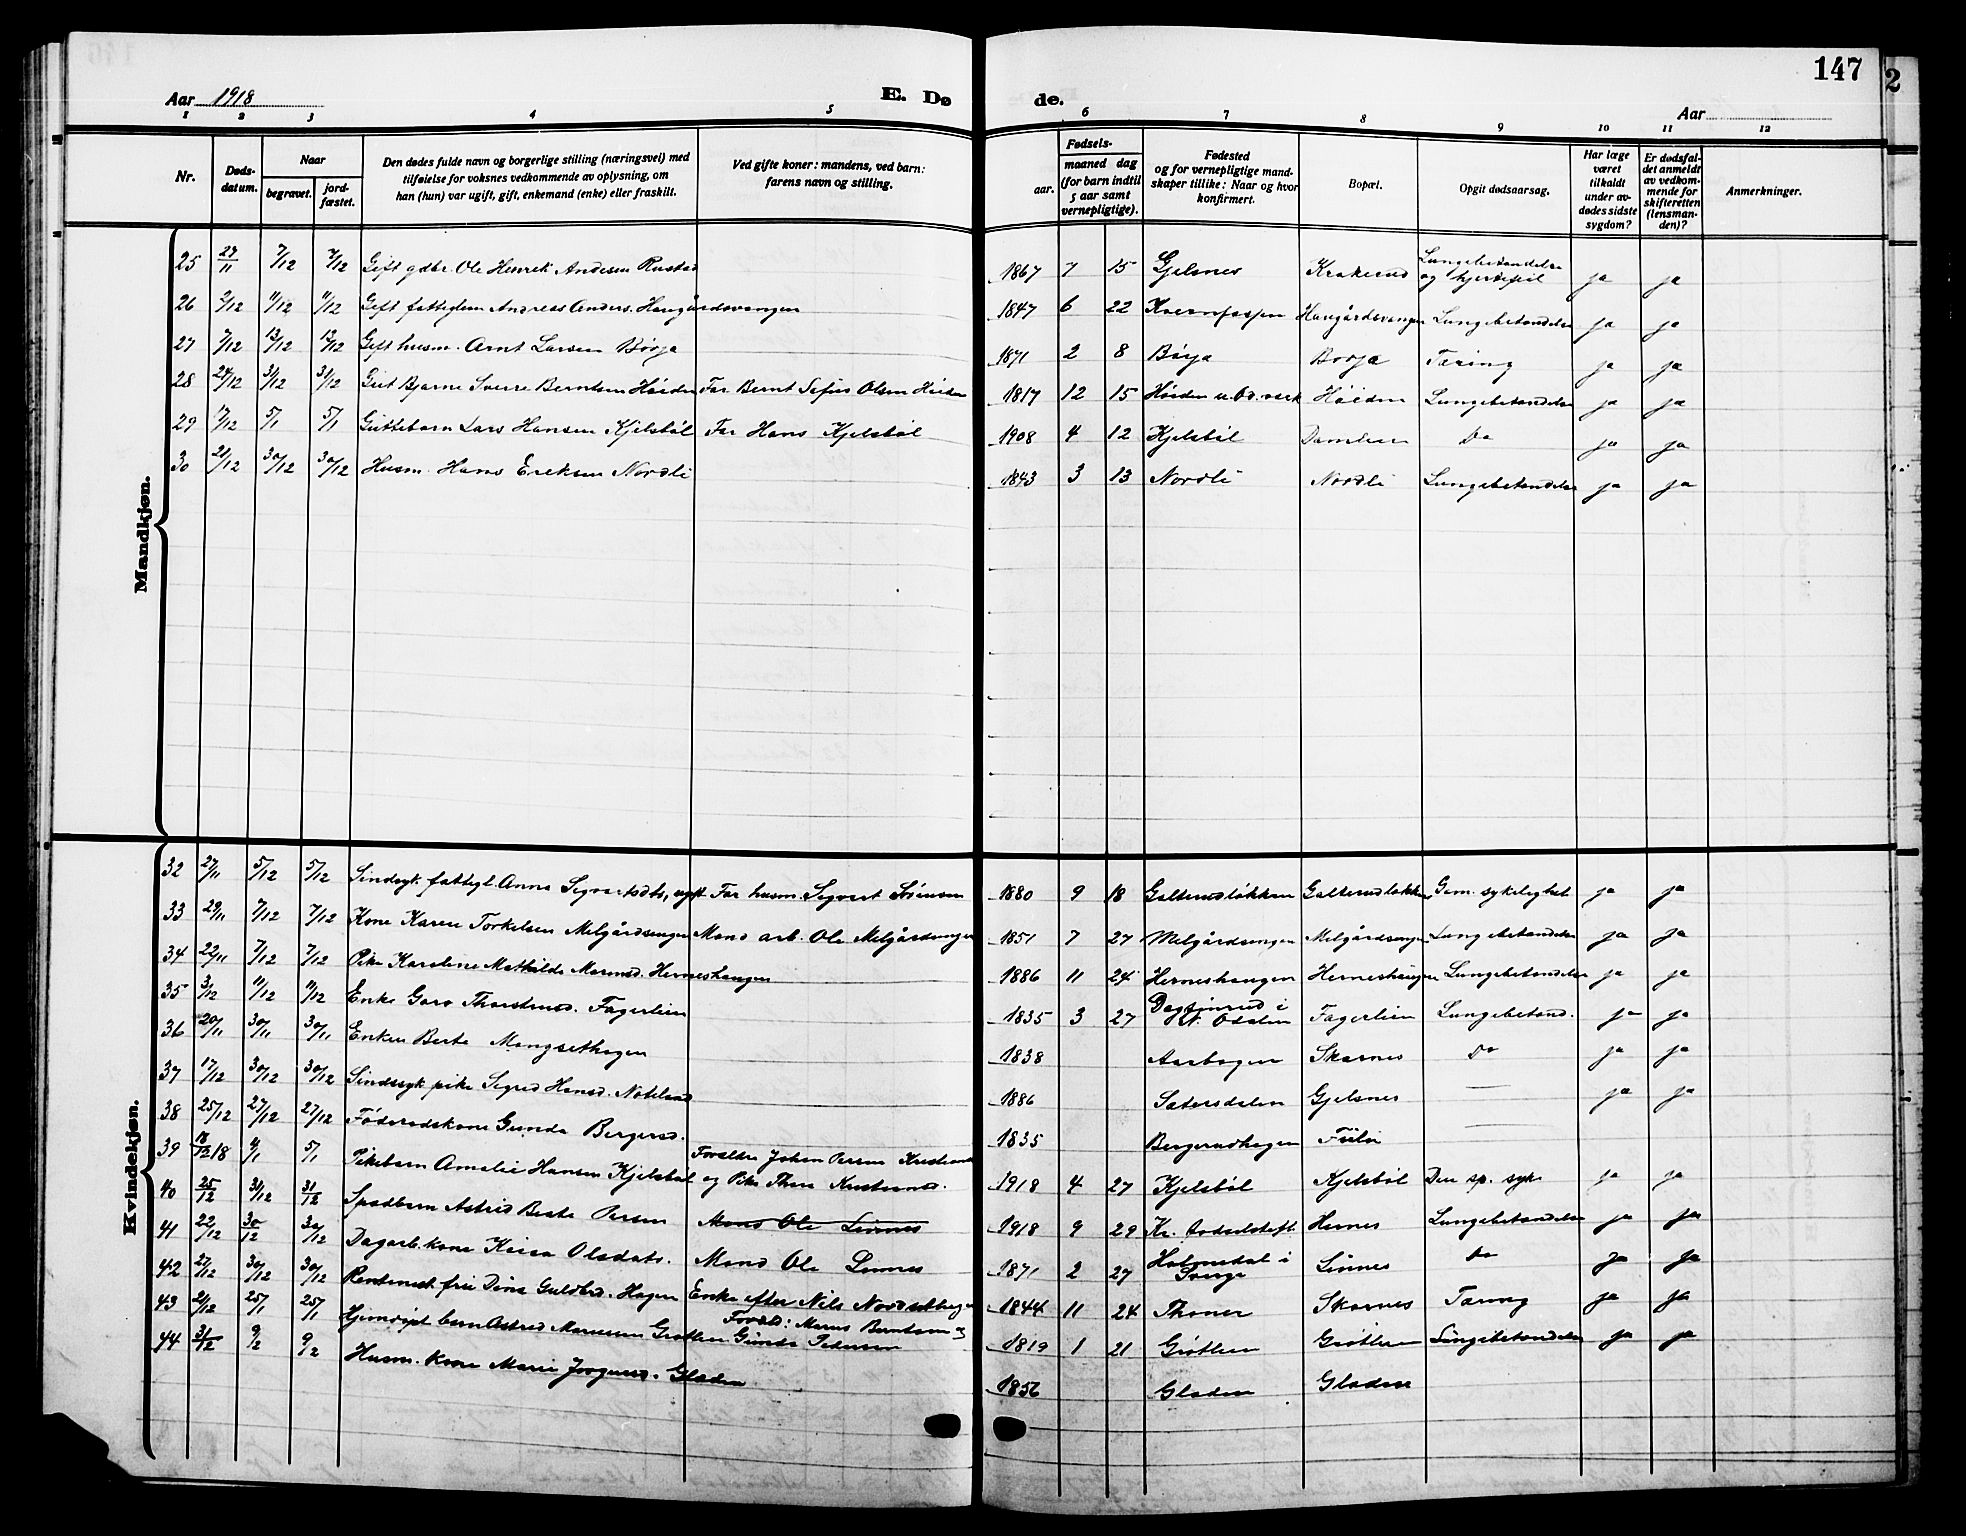 147
2
Aar 1918
E. Dø
de.
Aar
1 2 3 4 5 6 7 8 9 10 11 12
Nr.
Døds-
datum.
Naar
begravet.
jord-
fæstet.
Den dødes fulde navn og borgerlige stilling (næringsvei) med
tilføielse for voksnes vedkommende av oplysning, om
han (hun) var ugift, gift, enkemand (enke) eller fraskilt.
Ved gifte koner: mandens, ved barn:
farens navn og stilling.
Fødsels-
aar.
maaned dag
(for barn indtil
5 aar samt
vernepligtige).
Fødested
og for vernepligtige mand-
skaper tillike: Naar og hvor
konfirmert.
Bopæl.
Opgit dødsaarsag.
Har læge
været
tilkaldt
under av-
dødes sidste
sygdom?
Er dødsfal-
det anmeldt
av vedkom-
mende for
skifteretten
(lensman-
den)?
Anmerkninger.
Mandkjøn.
25 27/11 7/12 7/12 Gift gdbr. Ole Henrik Andersen Rustad 1867 7 15 Gjelsnes Krakerud Lungebetændelse og hjertefeil ja ja
26 2/12 11/12 11/12 Gift fattiglem Andreas Anders. Haugårdsvangen 1847 6 22 Haugårdsvangen Lungebetændelse ja ja
27 7/12 13/12 13/12 Gift husm. Arnt Larsen Børja 1871 2 8 Børja Borja Tæring ja ja
28 24/12 31/12 31/12 Gut Bjarne Sverre Berntsen Høiden Far Bernt Sefius Olsen Høiden 1817 12 15 Høiden Høiden Lungebetændelse ja ja
29 17/12 5/1 5/1 Guttebarn Lars Hansen Kjelsbøl Far Hans Kjelsbøl 1908 4 12 Kjelsbøl Do ja ja
30 21/12 30/12 30/12 Husm. Hans Eriksen Nordli 1843 3 13 Nordli Nordli Lungebetændelse ja ja
Kvindekjøn.
32 27/11 5/12 5/12 Sindsyk fattigl. Anna Segvartsdts, ugift Far husm. Segvart Sørensen 1880 9 18 Galterudløkken Galterudløkken Gem. sykelighet ja ja
33 29/11 7/12 7/12 Kone Karen Torkelsen Melgårdsengen Mand arb. Ole Melgårdsengen 1851 7 27 Melgårdsengen Melgårdsengen Lungebetændelse ja ja
34 22/11 7/12 7/12 Pike Karoline Mathilde Herneshaugen 1886 11 24 Herneshaugen Herneshaugen Lungebetændelse ja ja
35 3/12 11/12 11/12 Enke Goro Thorstensd. Fagerlien 1835 3 27 Dagfinrud i N. Odalen Fagerlien Lungebetænd. ja ja
36 20/11 30/11 30/11 Enken Berte Mangsethagen 1838 Aarbogen Skarnes Do ja ja
37 17/12 30/12 30/12 Sindssyk pike Segred Hansd. 1886 Satersdalen Gjelsnes — ja ja
38 25/12 27/12 27/12 Føderådskone Gunda Bergersd. 1835 Bergerudhagen Fulu —
39 18/12 18 4/1 5/1 Pikebarn Amalie Hansen Kjelsbøl 1918 4 27 Kjelsbøl Kjelsbøl Den sp. syke ja ja
40 25/12 31/12 31/12 Spædbarn Astrid Beate Persen Forældre Johan Persen og Pike Thea 1918 9 29 Kr. fødselsstift. Hernes Lungebetændelse ja ja
41 22/12 30/12 30/12 Dagarb.kone Keisa Olsdats. Mand Ole Linnes Mand Ole Linnes 1871 2 27 Holmedal i Sverge Linnes Do ja ja
42 27/12 30/12 30/12 Rentenist frue Dina Guldbrd. Hagen Enke efter Nils Nordsetbergen 1844 11 24 Thoner Skarnes Tæring ja ja
43 21/12 25/1 25/1 Hjemdøpt barn Astrid Mariussen Grøtlien Foræld: Marius Berntsen og Gunda Pedersen 1819 1 21 Grøtlien Grøtlien Lungebetændelse ja ja
44 31/12 9/2 9/2 Husm. kone Marie Joognesd. Gladen 1856 Gladen Gladen